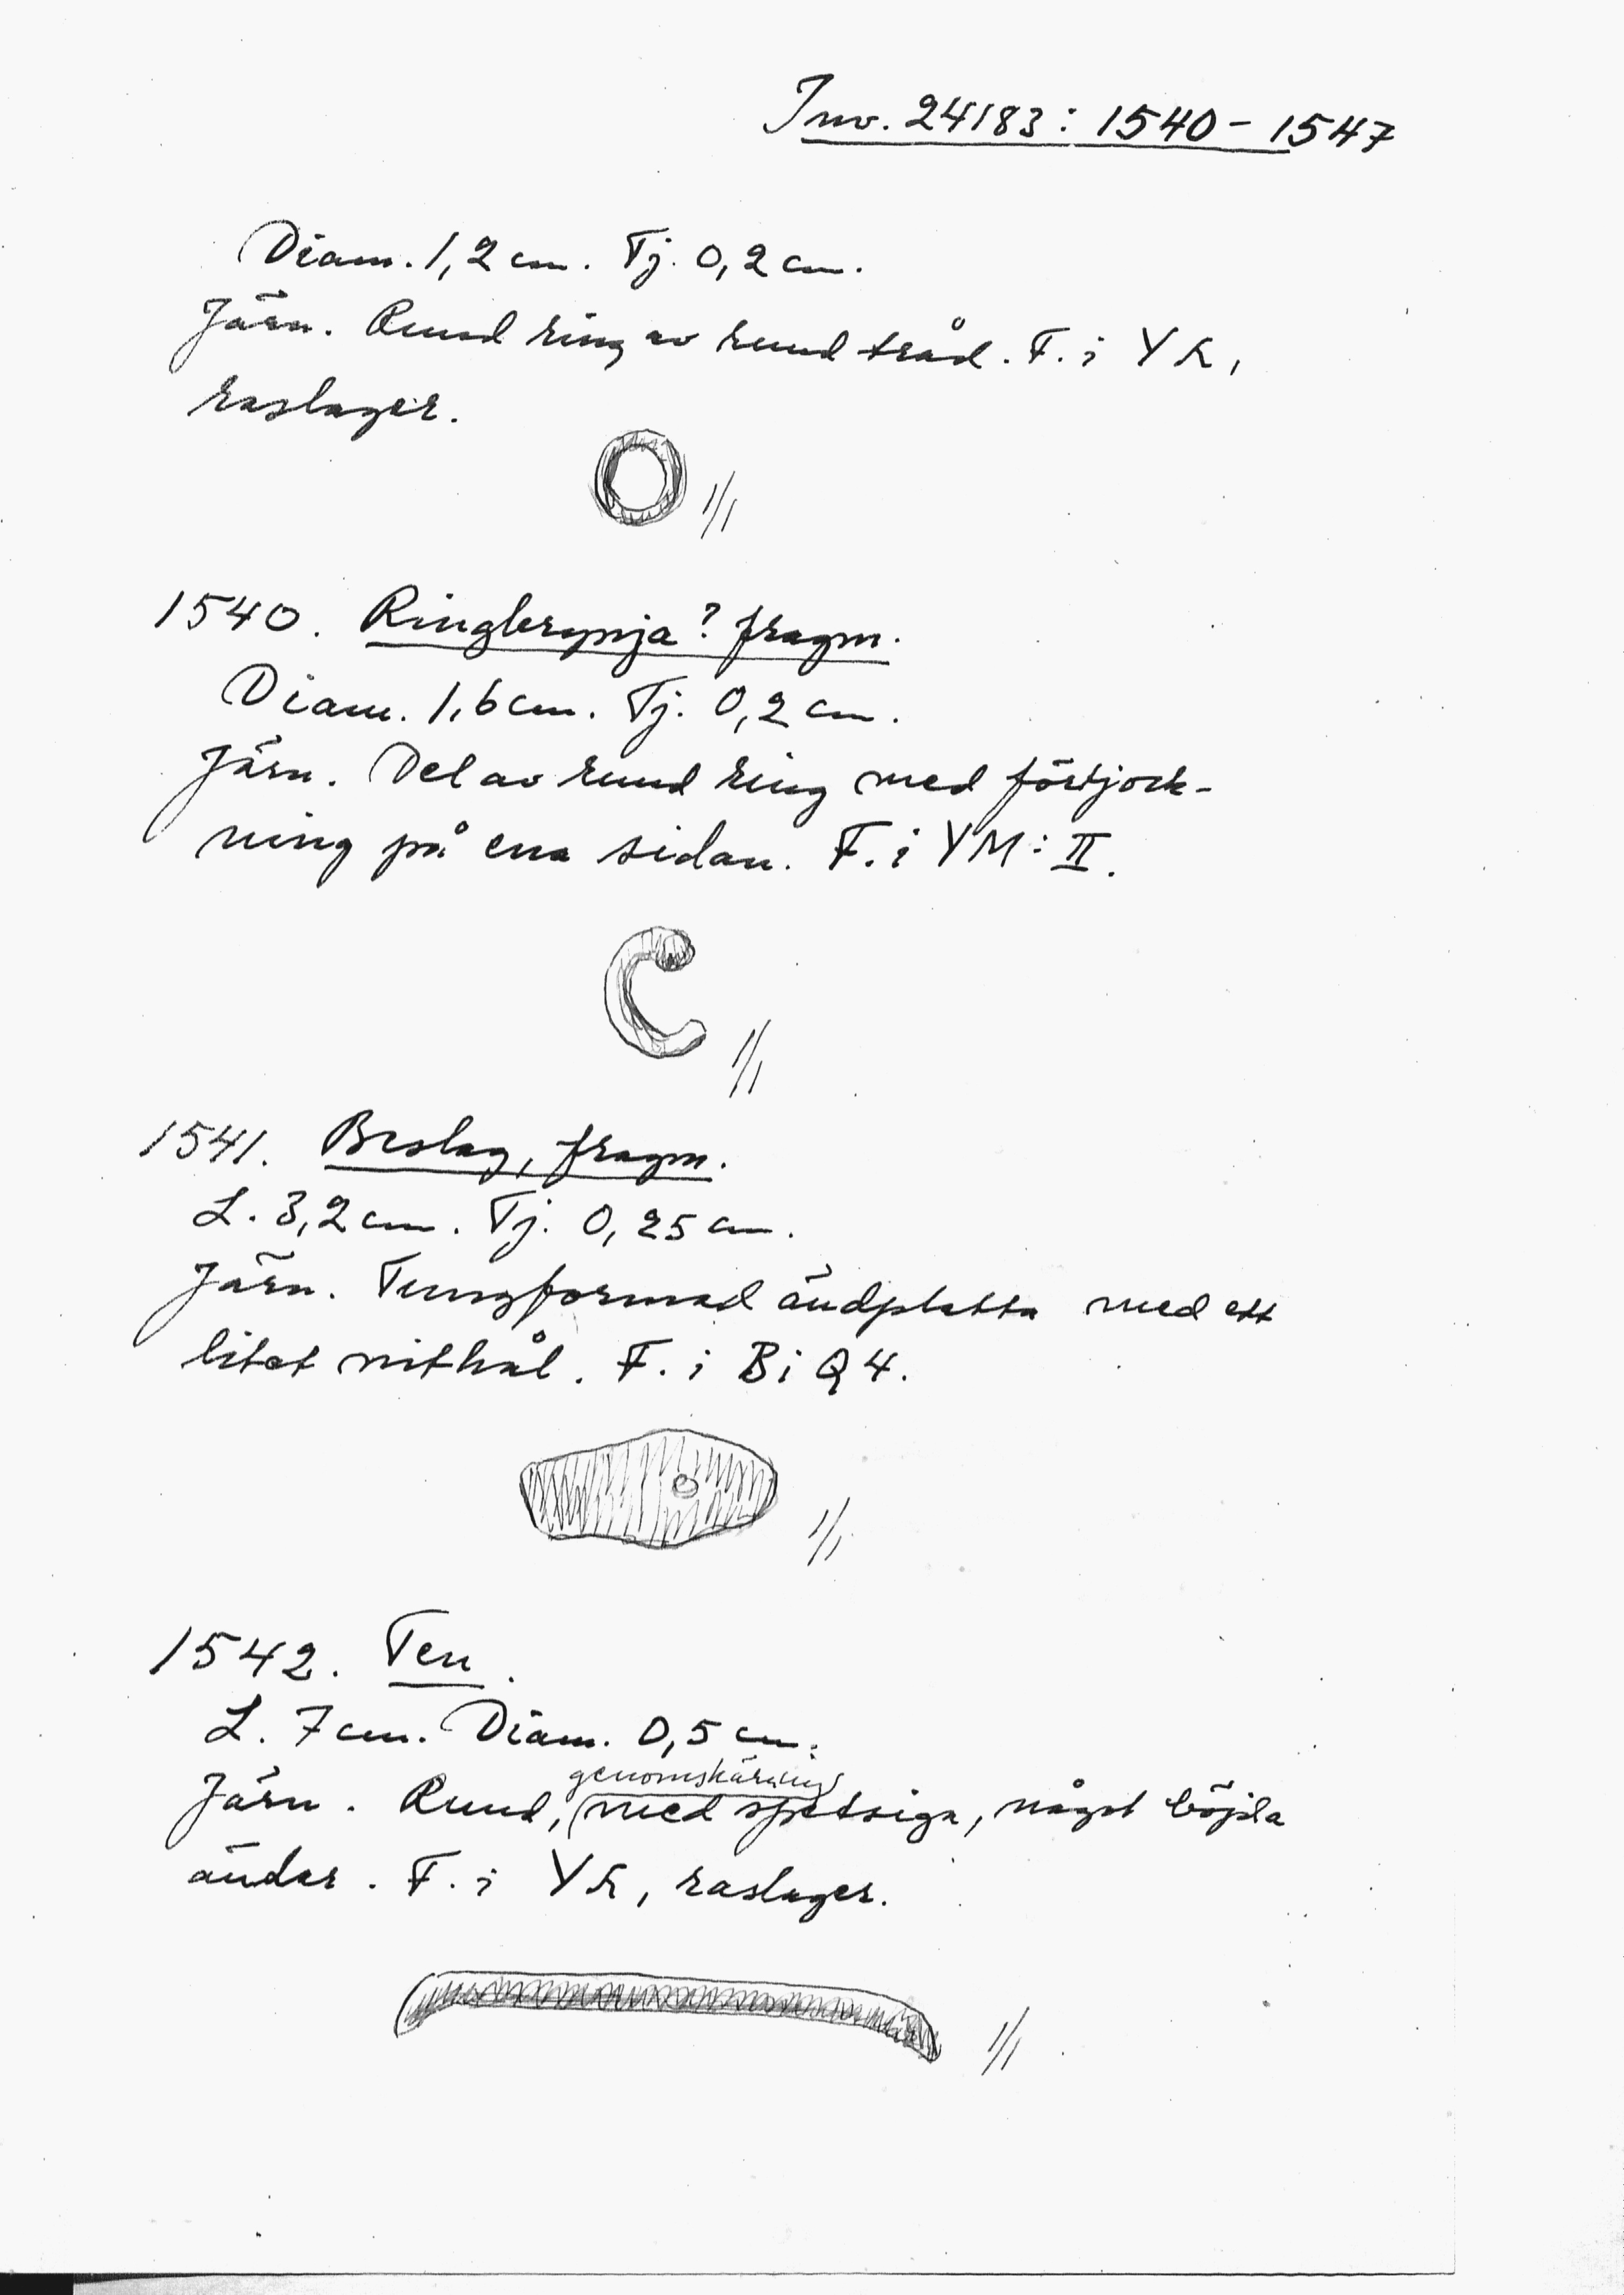 Inv. 24183: 1540-1547
Diam. 1,2 cm. Tj. 0,2 cm.
Järn. Rund ring av rund tråd. F. i YK,
raslager.
1/1
1540. Ringbrynja? fragm.
Diam. 1,6 cm. Tj. 0,2 cm.
Järn. Del av rund ring med förtjock-
ning på ena sidan. F. i YM: II.
1/1
1541. Beslag, fragm.
L. 3,2 cm. Tj. 0,25 cm.
Järn. Tungformad ändplatta med ett
litet nithål. F. i Bi Q4.
1/1
1542. Ten.
L. 7 cm. Diam. 0,5 cm.
genomskärning
Järn. Rund, med spetsiga, något böjda
ändar. F. i YK, raslager.
1/1